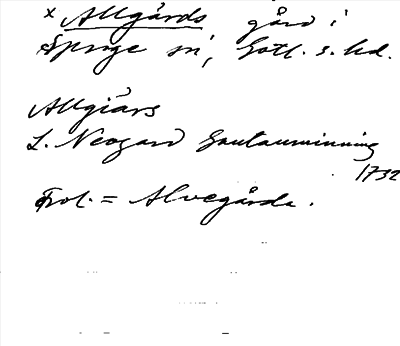 x Allgårds gård i
Sproge sn, Gotl. s. hd.
Allgiärs
L. Neogard Gautauminning
1732
Trol. = Alvegårda.